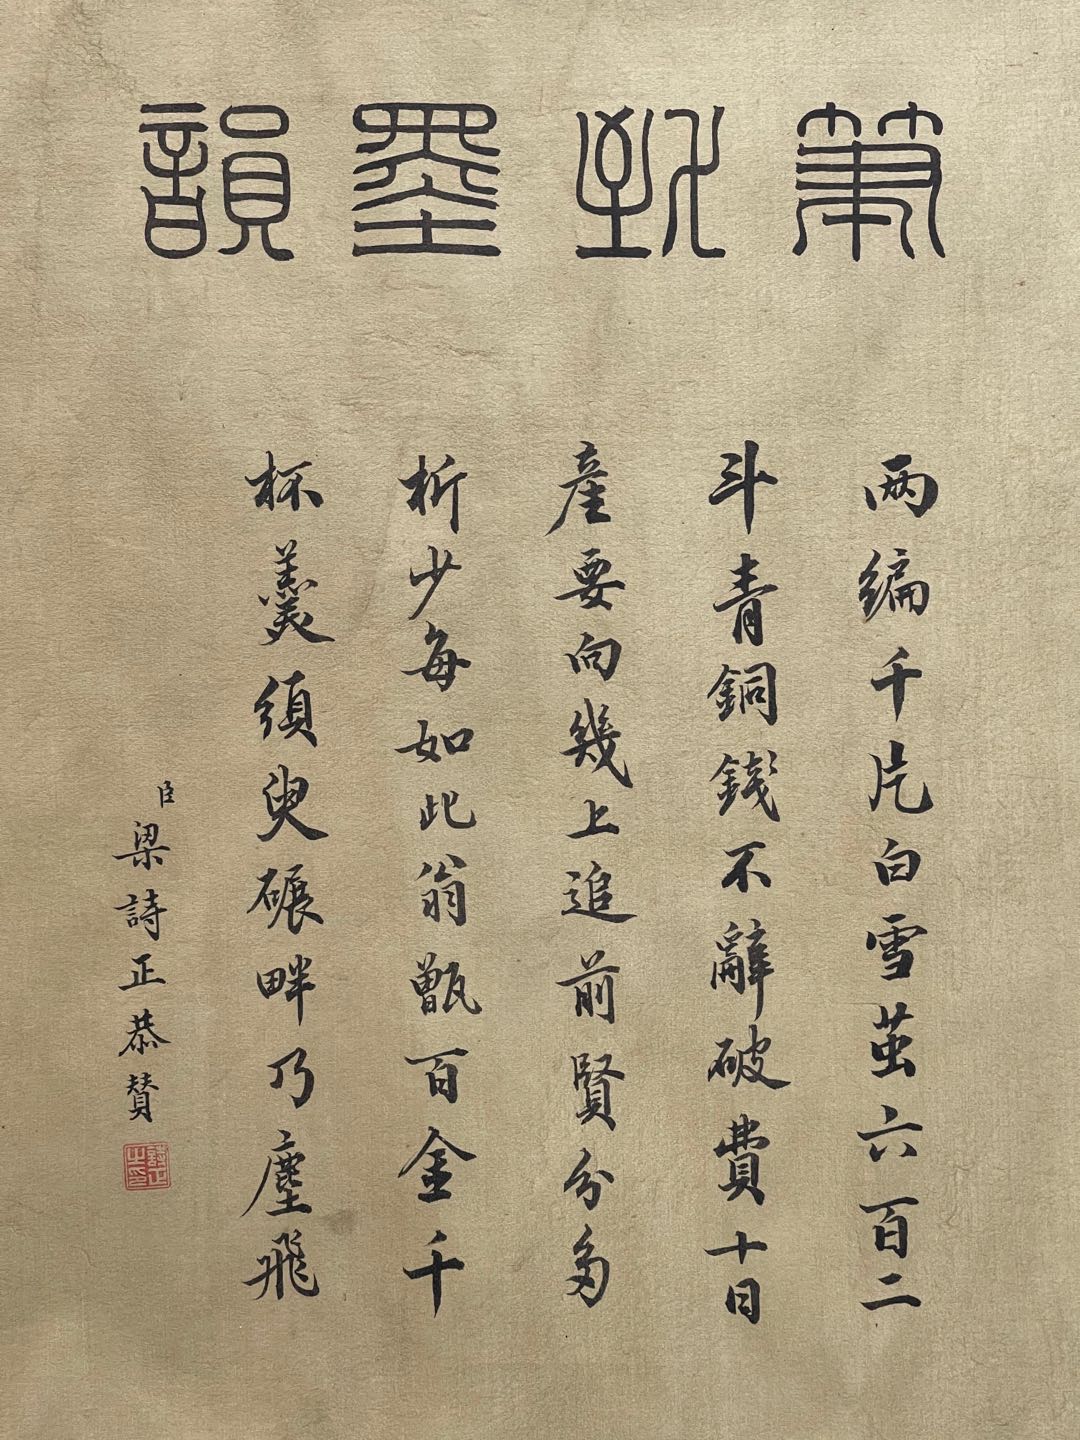 筆墨韻
两編千片白雪茧六百二
斗青銅錢不辭破費十日
產要向幾上追前賢分多
析少每如此翁甑百金千
杯羹須臾碾畔乃塵飛
臣梁詩正恭贊
詩正之印